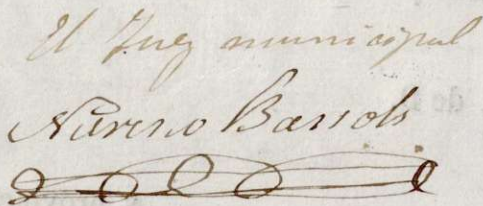 El Juez municipal
Nureno Barsols